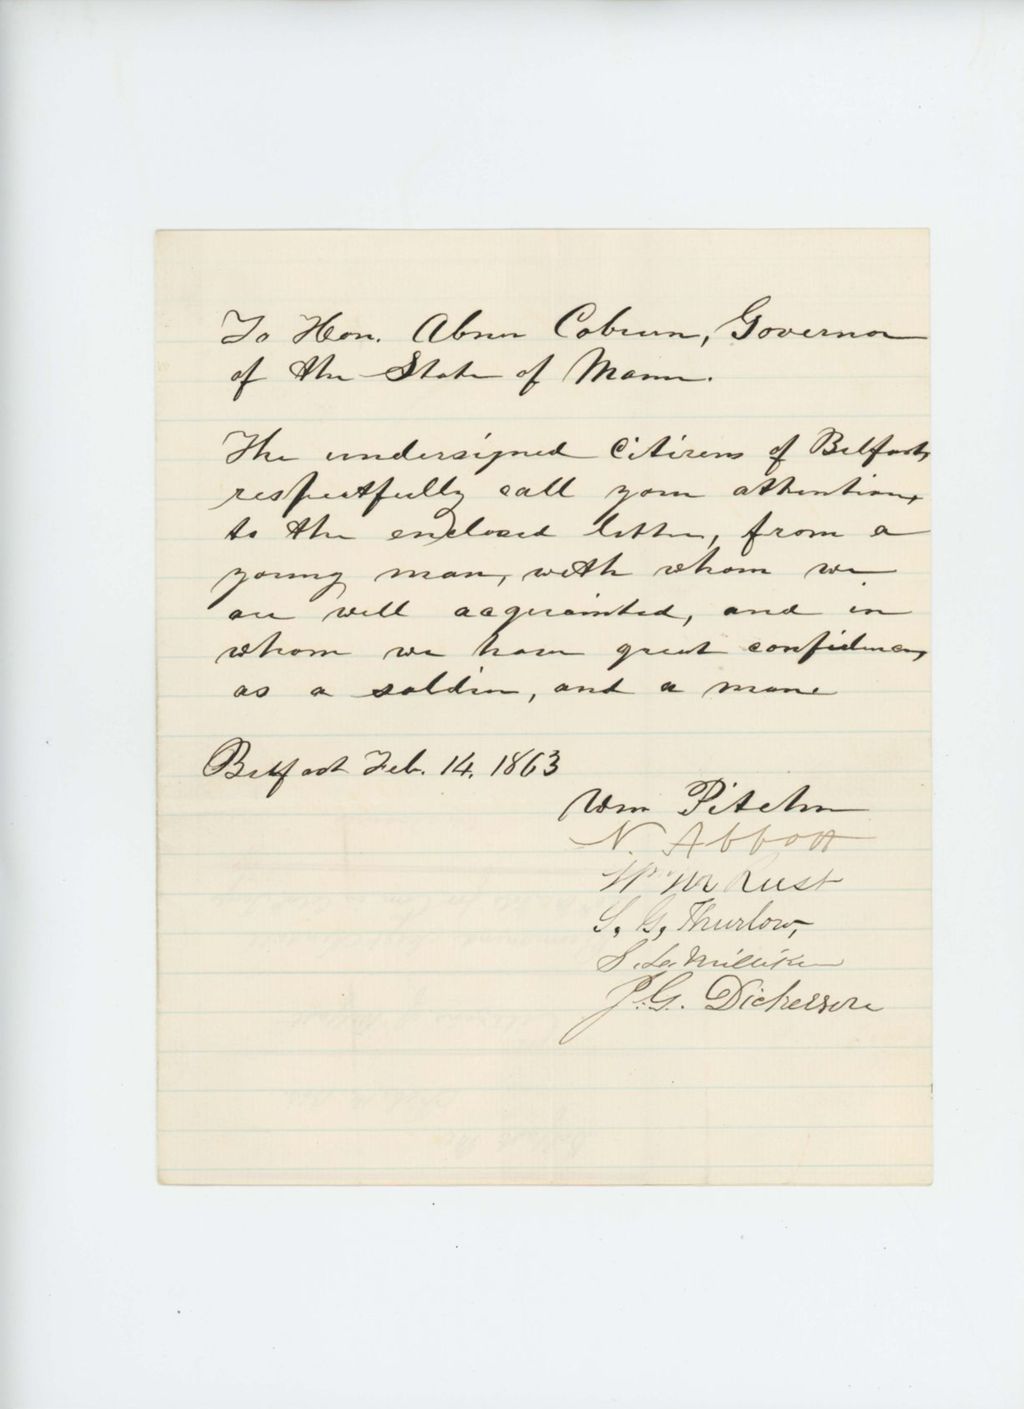 To Hon. Abner Coburn, Governor
of the State of Maine.
The undersigned Citizens of Belfast,
respectfully call your attention,
to the enclosed letter, from a
young man, with whom we
are well acquainted, and in
whom we have great confidence,
as a soldier, and a man
Belfast Feb. 14, 1863
Wm Pitcher
N. Abbott
Wm M Rust
S. G. Thurlow,
S. L. Milliken
J. G. Dickerson